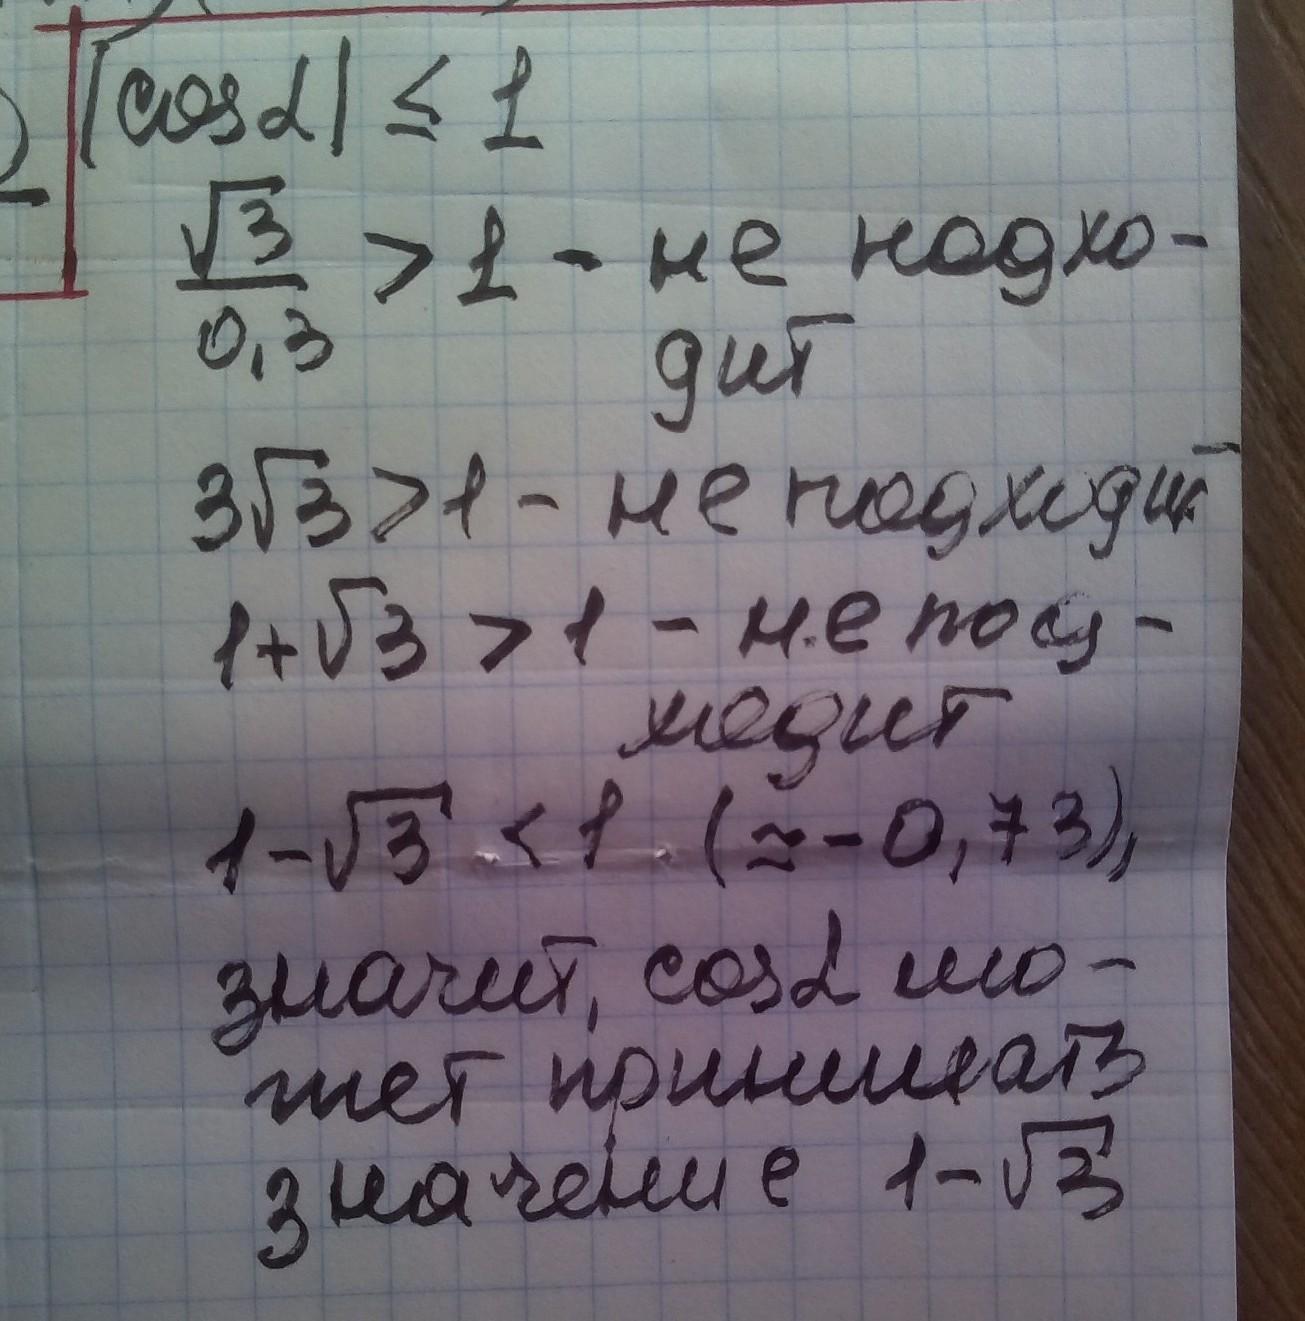 |cos α| ≤ 1
√3/0,3 > 1 - не подхо-
дит
3√3 > 1 - не подходит
1+√3 > 1 - не под-
ходит
1-√3 < 1 (≈ -0,73),
значит, cos α мо-
жет принимать
значение 1-√3